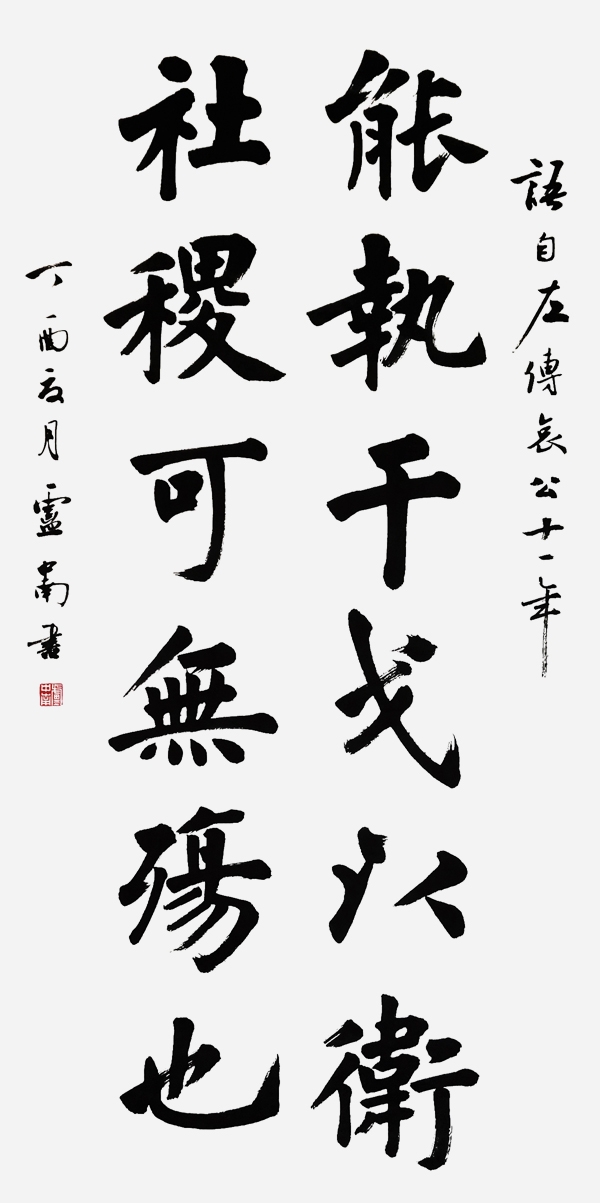 語自左傳哀公十一年
能執干戈以衛
社稷可無殤也
丁酉夏月靈南書